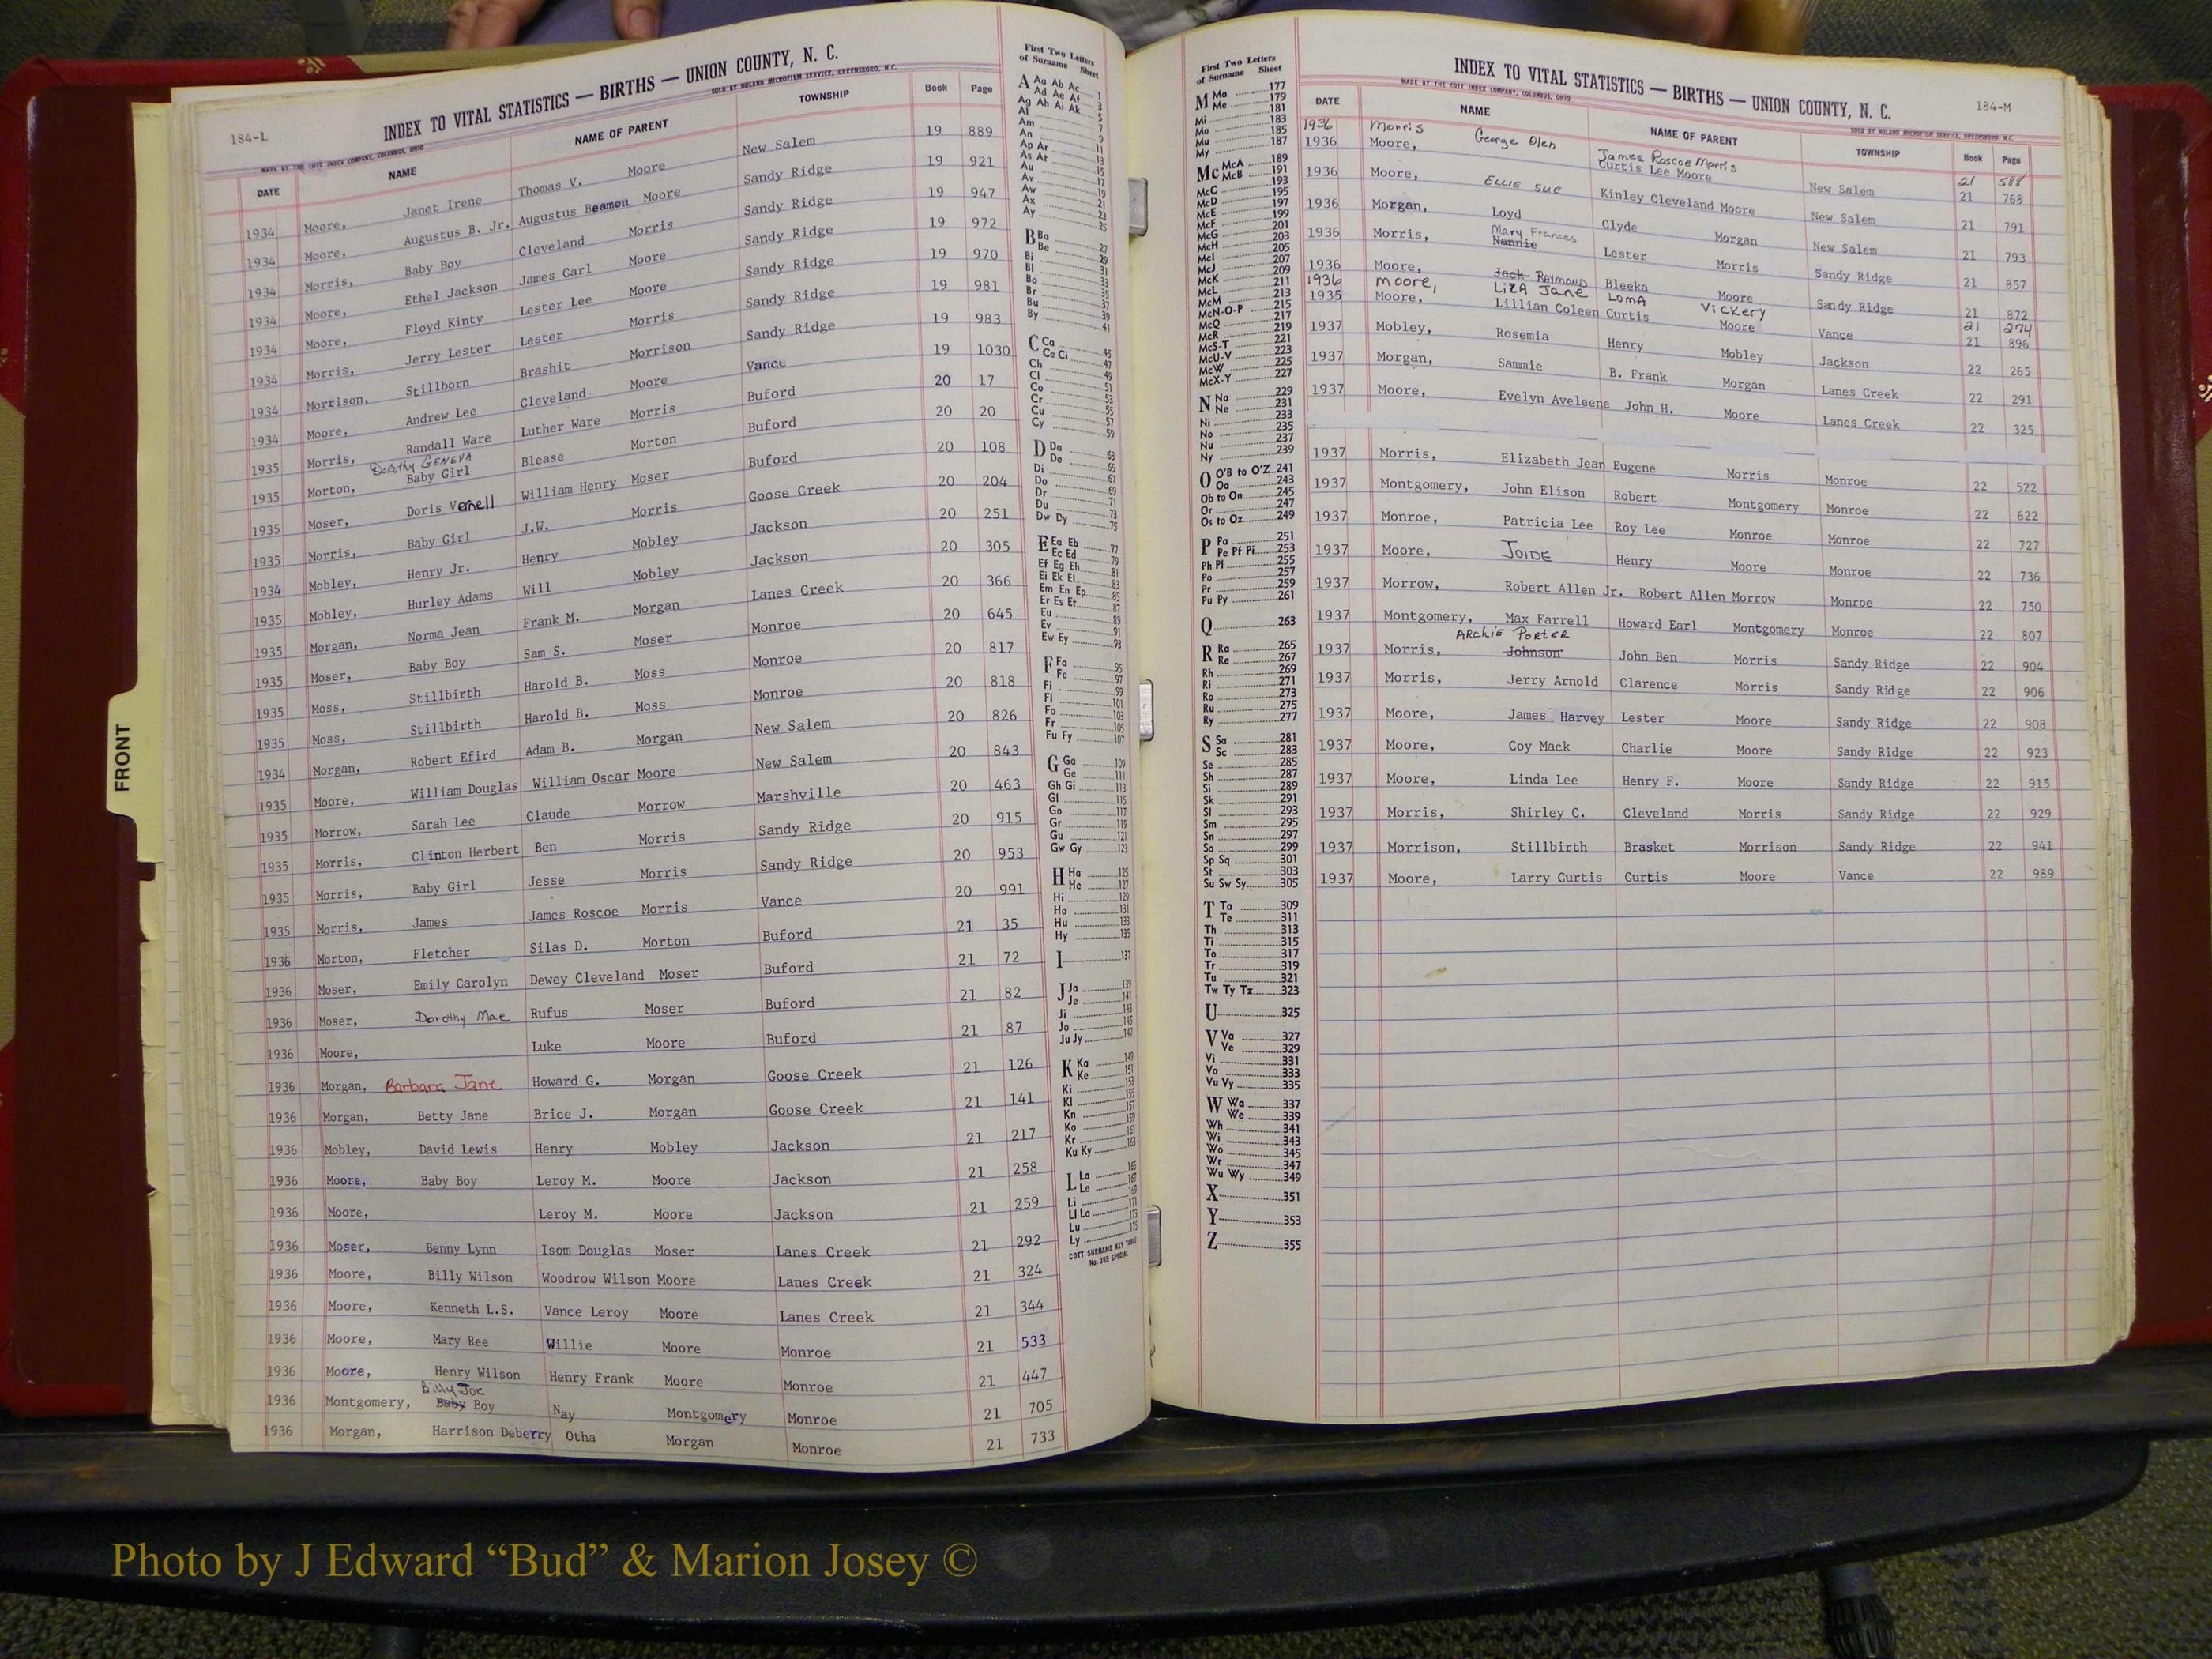 184-L
INDEX TO VITAL STATISTICS — BIRTHS — UNION COUNTY, N. C.
MADE BY THE COTT INDEX COMPANY, COLUMBUS, OHIO SOLD BY NOLAND MICROFILM SERVICE, GREENSBORO, N.C.
DATE NAME NAME OF PARENT TOWNSHIP Book Page
1934 Moore, Janet Irene Thomas V. Moore New Salem 19 889
1934 Moore, Augustus B. Jr. Augustus Beamon Moore Sandy Ridge 19 921
1934 Morris, Baby Boy Cleveland Morris Sandy Ridge 19 947
1934 Moore, Ethel Jackson James Carl Moore Sandy Ridge 19 972
1934 Moore, Floyd Kinty Lester Lee Moore Sandy Ridge 19 970
1934 Morris, Jerry Lester Lester Morris Sandy Ridge 19 981
1934 Morrison, Stillborn Brashit Morrison Sandy Ridge 19 983
1934 Moore, Andrew Lee Cleveland Moore Vance 19 1030
1935 Morris, Randall Ware Luther Ware Morris Buford 20 17
Dorothy GENEVA
1935 Morton, Baby Girl Blease Morton Buford 20 20
1935 Moser, Doris Vernell William Henry Moser Buford 20 108
1935 Morris, Baby Girl J.W. Morris Goose Creek 20 204
1934 Mobley, Henry Jr. Henry Mobley Jackson 20 251
1935 Mobley, Hurley Adams Will Mobley Jackson 20 305
1935 Morgan, Norma Jean Frank M. Morgan Lanes Creek 20 366
1935 Moser, Baby Boy Sam S. Moser Monroe 20 645
1935 Moss, Stillbirth Harold B. Moss Monroe 20 817
1935 Moss, Stillbirth Harold B. Moss Monroe 20 818
1934 Morgan, Robert Efird Adam B. Morgan New Salem 20 826
1935 Moore, William Douglas William Oscar Moore New Salem 20 843
1935 Morrow, Sarah Lee Claude Morrow Marshville 20 463
1935 Morris, Clinton Herbert Ben Morris Sandy Ridge 20 915
1935 Morris, Baby Girl Jesse Morris Sandy Ridge 20 953
1935 Morris, James James Roscoe Morris Vance 20 991
1936 Morton, Fletcher Silas D. Morton Buford 21 35
1936 Moser, Emily Carolyn Dewey Cleveland Moser Buford 21 72
1936 Moser, Dorothy Mae Rufus Moser Buford 21 82
1936 Moore, Luke Moore Buford 21 87
1936 Morgan, Barbara Jane Howard G. Morgan Goose Creek 21 126
1936 Morgan, Betty Jane Brice J. Morgan Goose Creek 21 141
1936 Mobley, David Lewis Henry Mobley Jackson 21 217
1936 Moore, Baby Boy Leroy M. Moore Jackson 21 258
1936 Moore, Leroy M. Moore Jackson 21 259
1936 Moser, Benny Lynn Isom Douglas Moser Lanes Creek 21 292
1936 Moore, Billy Wilson Woodrow Wilson Moore Lanes Creek 21 324
1936 Moore, Kenneth L.S. Vance Leroy Moore Lanes Creek 21 344
1936 Moore, Mary Ree Willie Moore Monroe 21 533
1936 Moore, Henry Wilson Henry Frank Moore Monroe 21 447
Billy Joe
1936 Montgomery, Baby Boy Nay Montgomery Monroe 21 705
1936 Morgan, Harrison Deberry Otha Morgan Monroe 21 733
FRONT
First Two Letters
of Surname Sheet
A Aa Ab Ac 1
Ad Ae Af 3
Ag Ah Ai Ak 5
Al 7
Am 9
An 11
Ap Ar 13
As At 15
Au 17
Av 19
Aw 21
Ax 23
Ay 25
B Ba 27
Be 29
Bi 31
Bl 33
Bo 35
Br 37
Bu 39
By 41
C Ca 45
Ce Ci 47
Ch 49
Cl 51
Co 53
Cr 55
Cu 57
Cy 59
D Da 63
De 65
Di 67
Do 69
Dr 71
Du 73
Dw Dy 75
E Ea Eb 77
Ec Ed 79
Ef Eg Eh 81
Ei Ek El 83
Em En Ep 85
Er Es Et 87
Eu 89
Ev 91
Ew Ey 93
F Fa 95
Fe 97
Fi 99
Fl 101
Fo 103
Fr 105
Fu Fy 107
G Ga 109
Ge 111
Gh Gi 113
Gl 115
Go 117
Gr 119
Gu 121
Gw Gy 123
H Ha 125
He 127
Hi 129
Ho 131
Hu 133
Hy 135
I 137
J Ja 139
Je 141
Ji 143
Jo 145
Ju Jy 147
K Ka 149
Ke 151
Ki 153
Kl 155
Kn 157
Ko 159
Kr 161
Ku Ky 163
L La 165
Le 167
Li 169
Ll Lo 171
Lu 173
Ly 175
COTT SURNAME KEY TABLE
No. 355 SPECIAL
First Two Letters
of Surname Sheet
M Ma 177
Me 179
Mi 181
Mo 183
Mu 185
My 187
Mc McA 189
McB 191
McC 193
McD 195
McE 197
McF 199
McG 201
McH 203
McI 205
McJ 207
McK 209
McL 211
McM 213
McN-O-P 215
McQ 217
McR 219
McS-T 221
McU-V 223
McW 225
McX-Y 227
N Na 229
Ne 231
Ni 233
No 235
Nu 237
Ny 239
O O'B to O'Z 241
Oa 243
Ob to On 245
Or 247
Os to Oz 249
P Pa 251
Pe Pf Pi 253
Ph Pl 255
Po 257
Pr 259
Pu Py 261
Q 263
R Ra 265
Re 267
Rh 269
Ri 271
Ro 273
Ru 275
Ry 277
S Sa 281
Sc 283
Se 285
Sh 287
Si 289
Sk 291
Sl 293
Sm 295
Sn 297
So 299
Sp Sq 301
St 303
Su Sw Sy 305
T Ta 309
Te 311
Th 313
Ti 315
To 317
Tr 319
Tu 321
Tw Ty Tz 323
U 325
V Va 327
Ve 329
Vi 331
Vo 333
Vu Vy 335
W Wa 337
We 339
Wh 341
Wi 343
Wo 345
Wr 347
Wu Wy 349
X 351
Y 353
Z 355
INDEX TO VITAL STATISTICS — BIRTHS — UNION COUNTY, N. C.
184-M
MADE BY THE COTT INDEX COMPANY, COLUMBUS, OHIO SOLD BY NOLAND MICROFILM SERVICE, GREENSBORO, N.C.
DATE NAME NAME OF PARENT TOWNSHIP Book Page
1936 Morris George Olen James Roscoe Morris 21 588
1936 Moore, Curtis Lee Moore New Salem 21 768
1936 Moore, ELLIE SUE Kinley Cleveland Moore New Salem 21 791
1936 Morgan, Loyd Clyde Morgan New Salem 21 793
Mary Frances
1936 Morris, Nannie Lester Morris Sandy Ridge 21 857
1936 Moore, Jack RAYMOND Bleeka Moore Sandy Ridge 21 872
1936 Moore, LIZA Jane LOMA Vickery 21 274
1935 Moore, Lillian Coleen Curtis Moore Vance 21 896
1937 Mobley, Rosemia Henry Mobley Jackson 22 265
1937 Morgan, Sammie B. Frank Morgan Lanes Creek 22 291
1937 Moore, Evelyn Aveleene John H. Moore Lanes Creek 22 325
1937 Morris, Elizabeth Jean Eugene Morris Monroe 22 522
1937 Montgomery, John Elison Robert Montgomery Monroe 22 622
1937 Monroe, Patricia Lee Roy Lee Monroe Monroe 22 727
1937 Moore, JOIDE Henry Moore Monroe 22 736
1937 Morrow, Robert Allen Jr. Robert Allen Morrow Monroe 22 750
1937 Montgomery, Max Farrell Howard Earl Montgomery Monroe 22 807
ARCHIE PORTER
1937 Morris, Johnson John Ben Morris Sandy Ridge 22 904
1937 Morris, Jerry Arnold Clarence Morris Sandy Ridge 22 906
1937 Moore, James Harvey Lester Moore Sandy Ridge 22 908
1937 Moore, Coy Mack Charlie Moore Sandy Ridge 22 923
1937 Moore, Linda Lee Henry F. Moore Sandy Ridge 22 915
1937 Morris, Shirley C. Cleveland Morris Sandy Ridge 22 929
1937 Morrison, Stillbirth Brasket Morrison Sandy Ridge 22 941
1937 Moore, Larry Curtis Curtis Moore Vance 22 989
Photo by J Edward “Bud” & Marion Josey ©